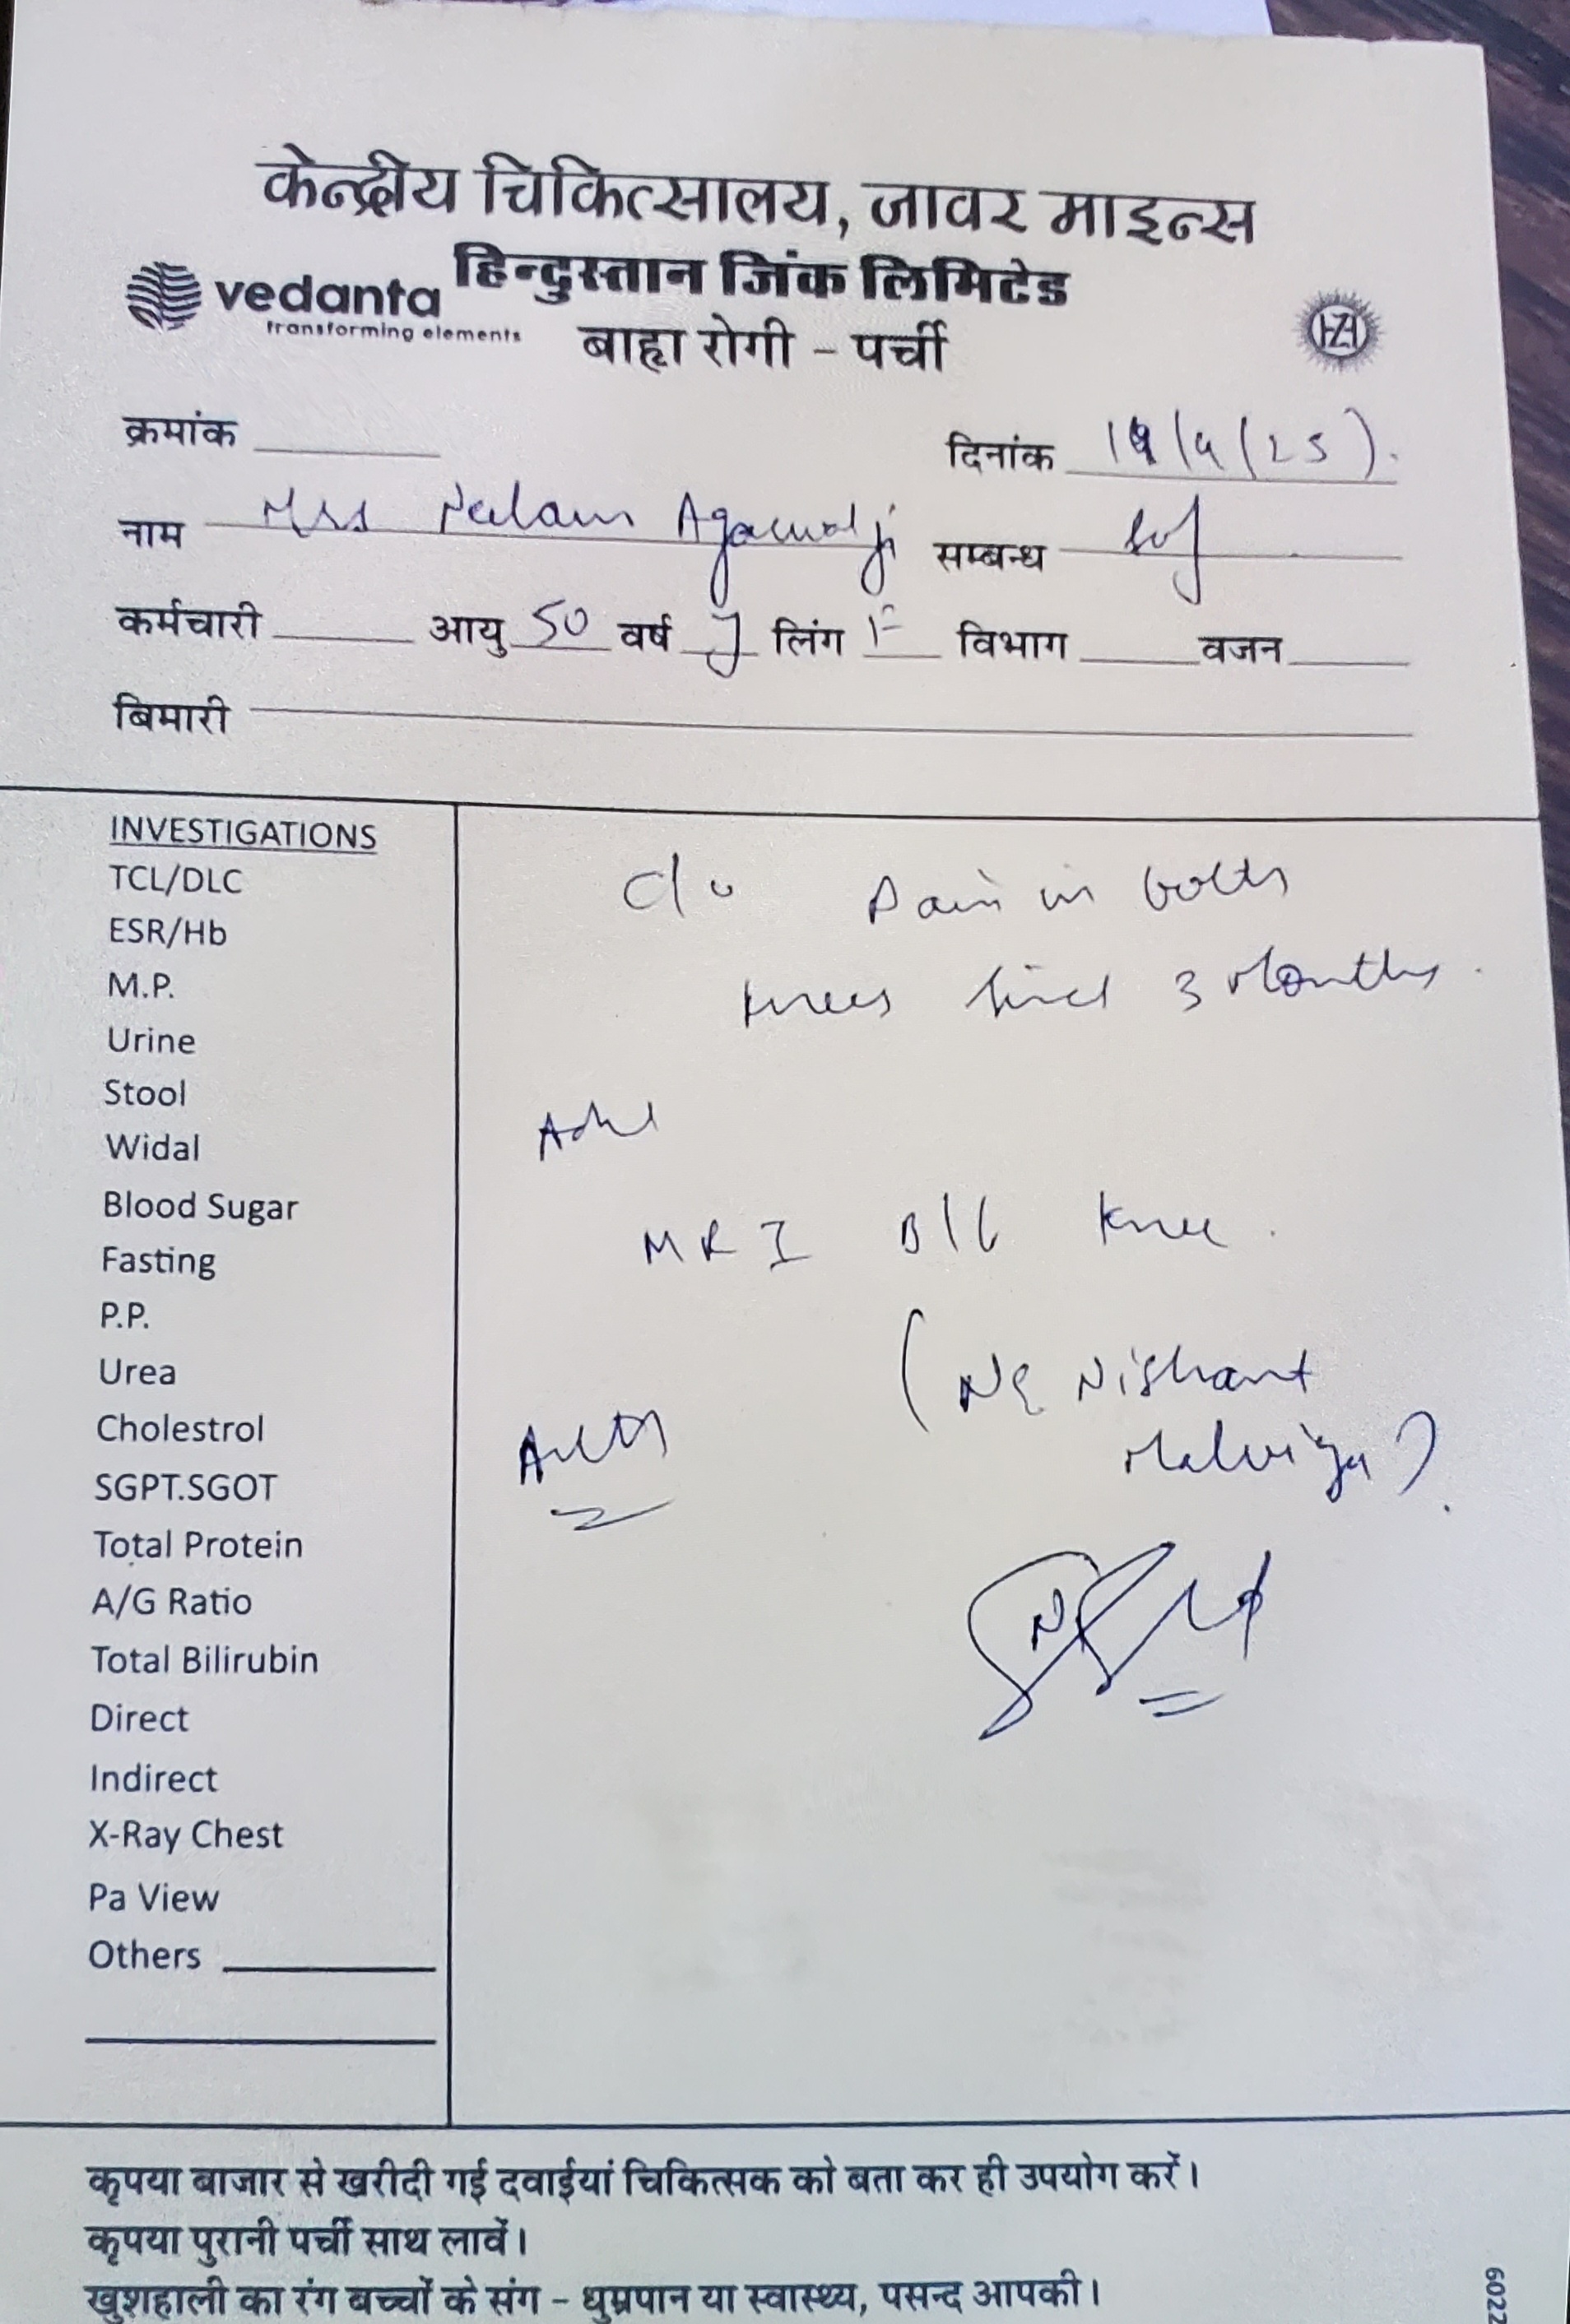 केन्द्रीय चिकित्सालय, जावर माइन्स
हिन्दुस्तान जिंक लिमिटेड
vedanta
transforming elements
बाह्य रोगी - पर्ची
HZL
क्रमांक
दिनांक /4/25
नाम Mrs Neelam Agarwal ji सम्बन्ध
कर्मचारी आयु 50 वर्ष y लिंग F विभाग वजन
बिमारी
INVESTIGATIONS
TCL/DLC
ESR/Hb
M.P.
Urine
Stool
Widal
Blood Sugar
Fasting
P.P.
Urea
Cholestrol
SGPT.SGOT
Total Protein
A/G Ratio
Total Bilirubin
Direct
Indirect
X-Ray Chest
Pa View
Others
C/o Pain in both
knees since 3 Months.
Adv
MRI B/L Knee.
( Nishant
Malviya).
कृपया बाजार से खरीदी गई दवाईयां चिकित्सक को बता कर ही उपयोग करें।
कृपया पुरानी पर्ची साथ लावें।
खुशहाली का रंग बच्चों के संग - धुम्रपान या स्वास्थ्य, पसन्द आपकी।
6022